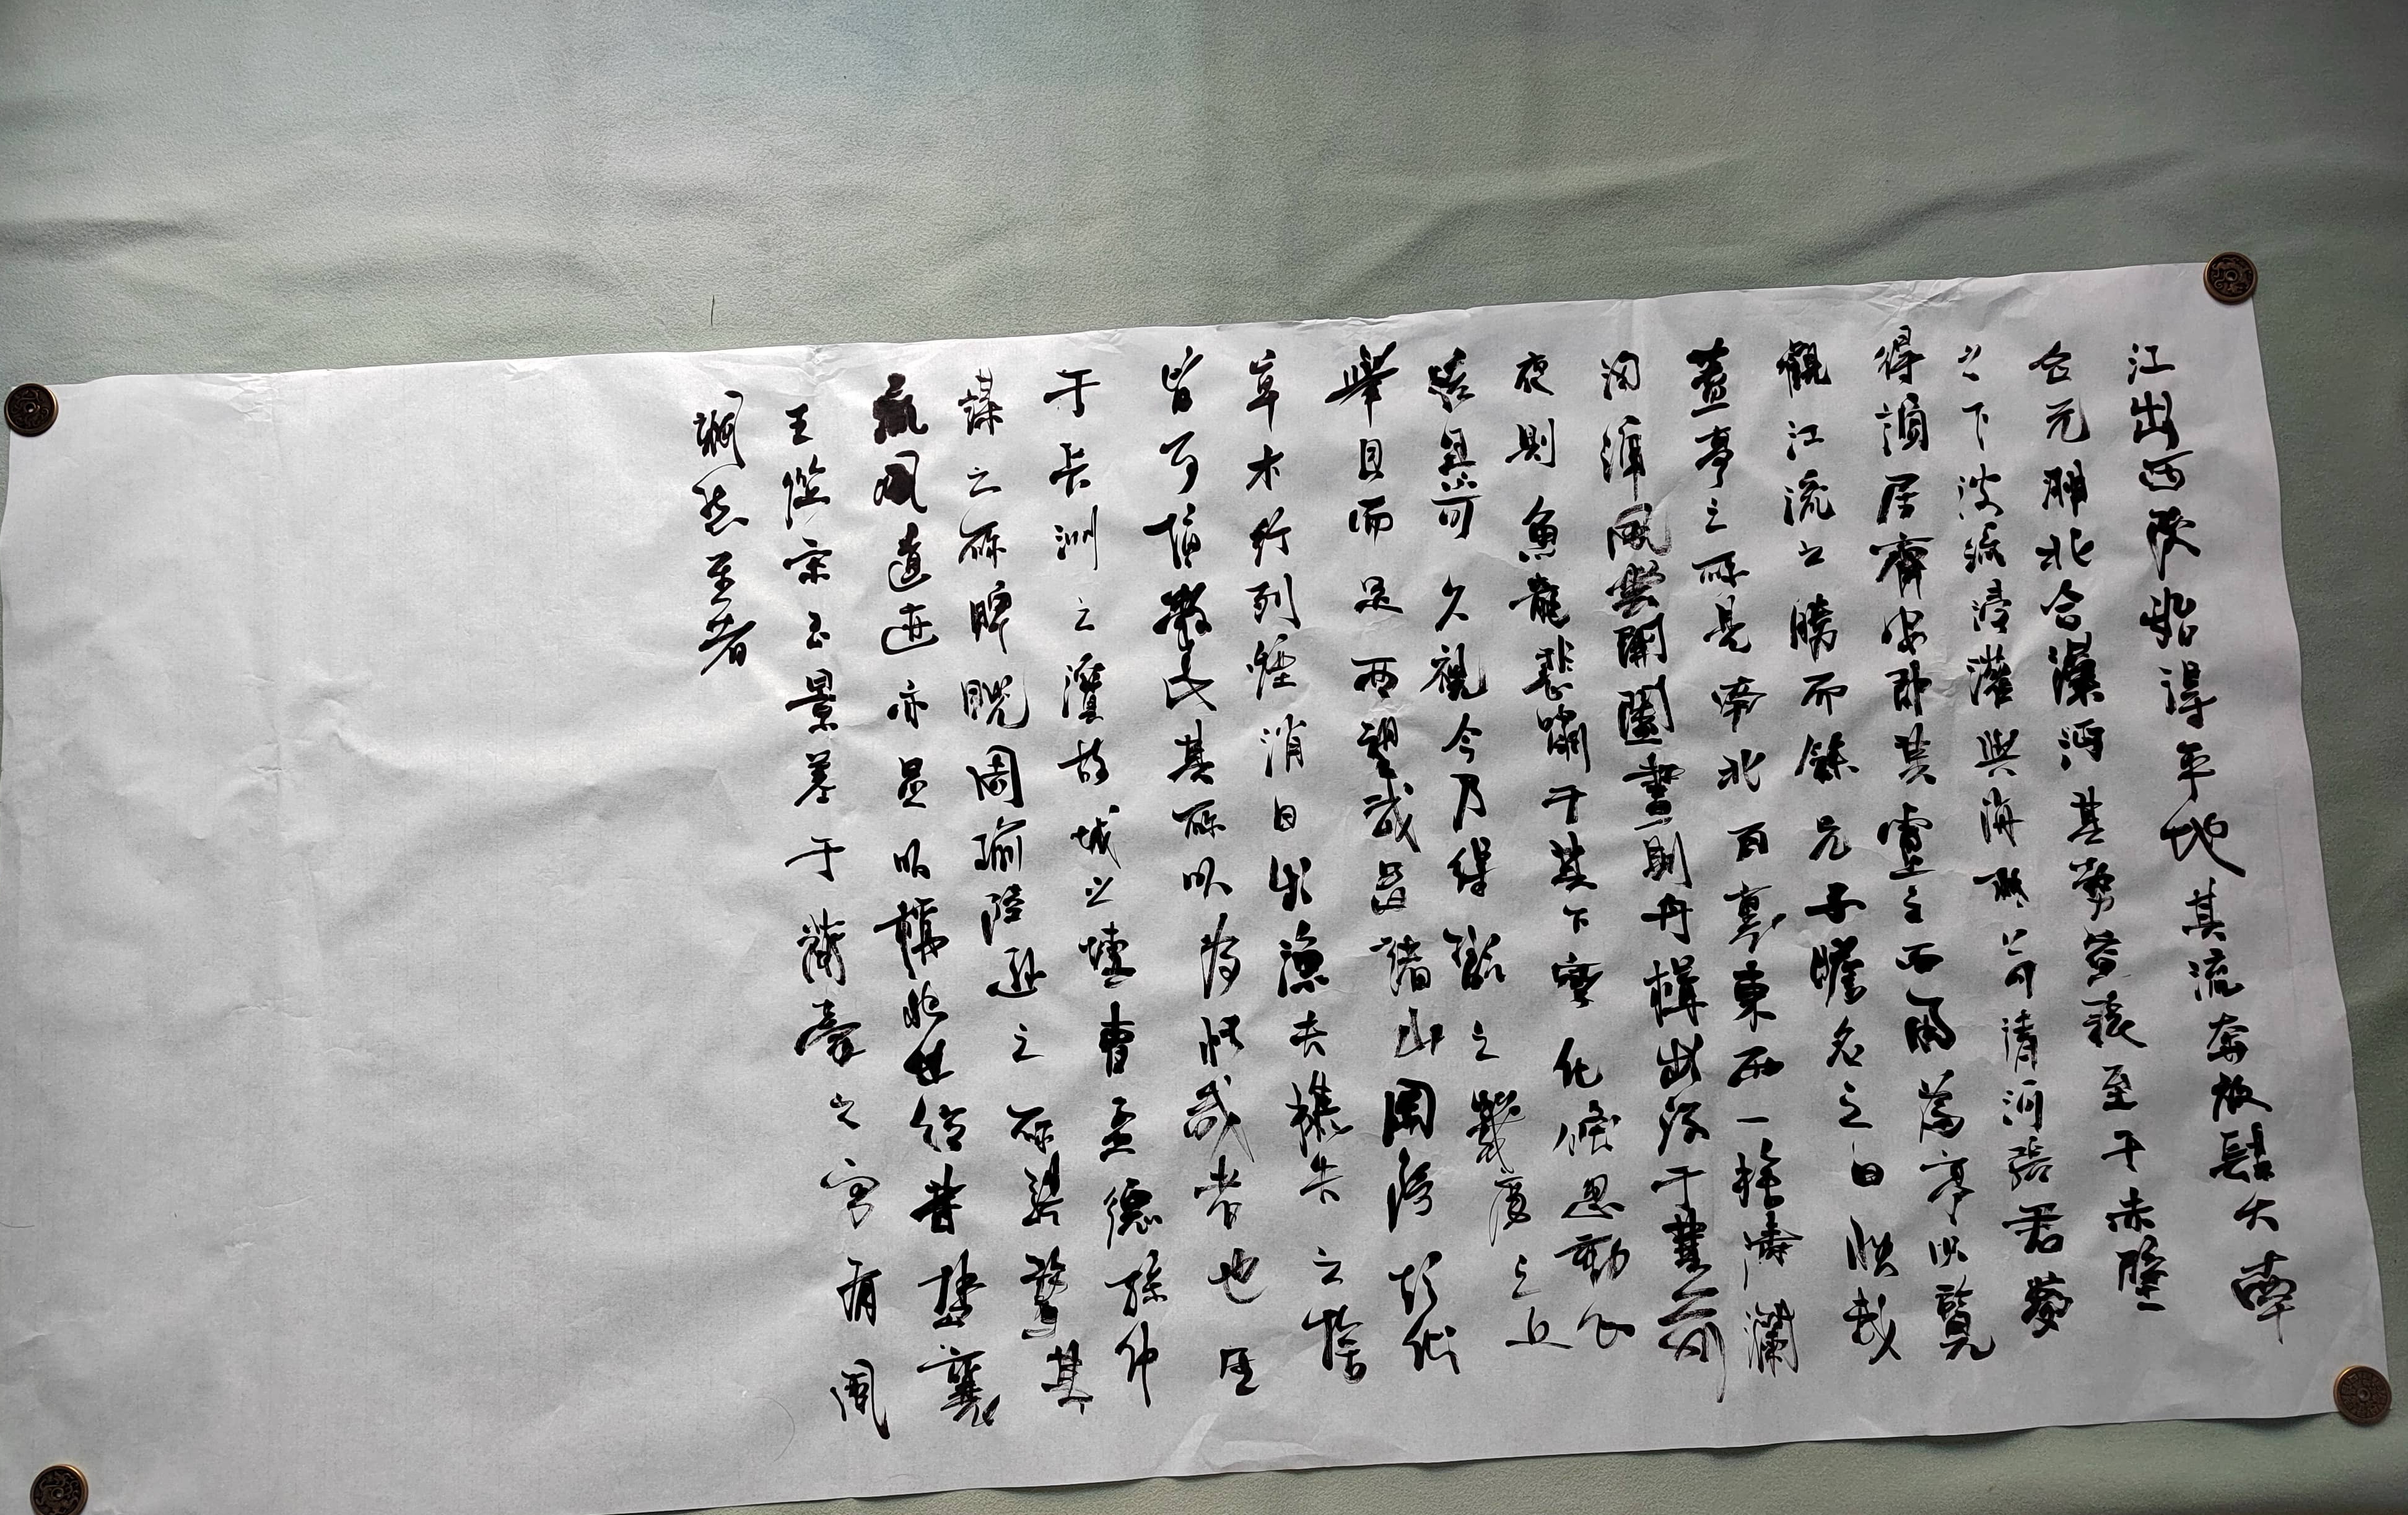 江出西陵始得平地其流奔放肆大南
合元湘北合漢沔其勢益張至于赤壁
之下波流浸灌與海相若清河張君夢
得謫居齊安即其廬之西南為亭以覽
觀江流之勝而餘兄子瞻名之曰快哉
蓋亭之所見南北百里東西一捨濤瀾
洶湧風雲開闔晝則舟楫出沒于其前
夜則魚龍悲嘯于其下變化倏忽動心
駭目不可久視今乃得翫之几席之上
舉目而足西望武昌諸山岡陵起伏
草木行列煙消日出漁夫樵父之捨
皆可指數此其所以為快哉者也至
于長洲之濱故城之墟曹孟德孫仲
謀之所睥睨周瑜陸遜之所騁騖其
流風遺迹亦足以稱快世俗昔楚襄
王從宋玉景差于蘭臺之宮有風
颯然至者